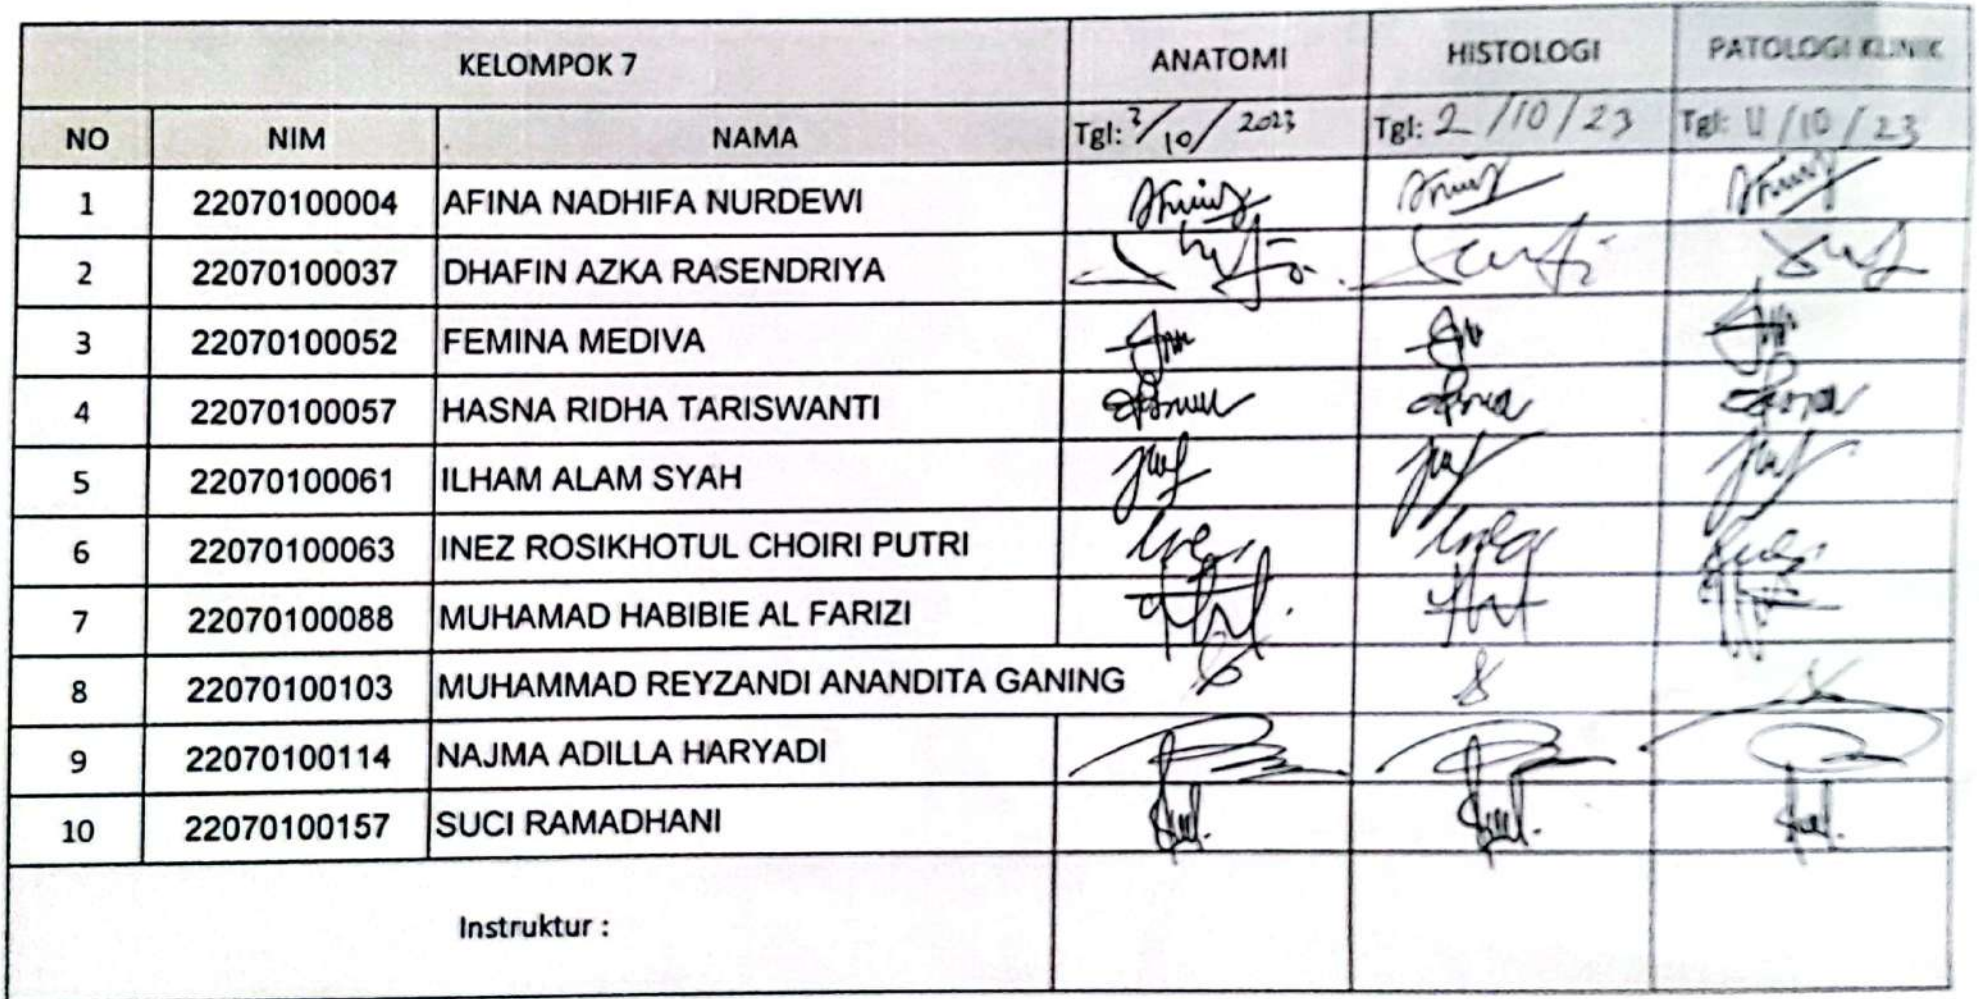 KELOMPOK 7 ANATOMI HISTOLOGI PATOLOGI KLINIK
NO NIM NAMA Tgl: 3/10/2023 Tgl: 2/10/23 Tgl: 11/10/23
1 22070100004 AFINA NADHIFA NURDEWI
2 22070100037 DHAFIN AZKA RASENDRIYA
3 22070100052 FEMINA MEDIVA
4 22070100057 HASNA RIDHA TARISWANTI
5 22070100061 ILHAM ALAM SYAH
6 22070100063 INEZ ROSIKHOTUL CHOIRI PUTRI
7 22070100088 MUHAMAD HABIBIE AL FARIZI
8 22070100103 MUHAMMAD REYZANDI ANANDITA GANING
9 22070100114 NAJMA ADILLA HARYADI
10 22070100157 SUCI RAMADHANI
Instruktur :